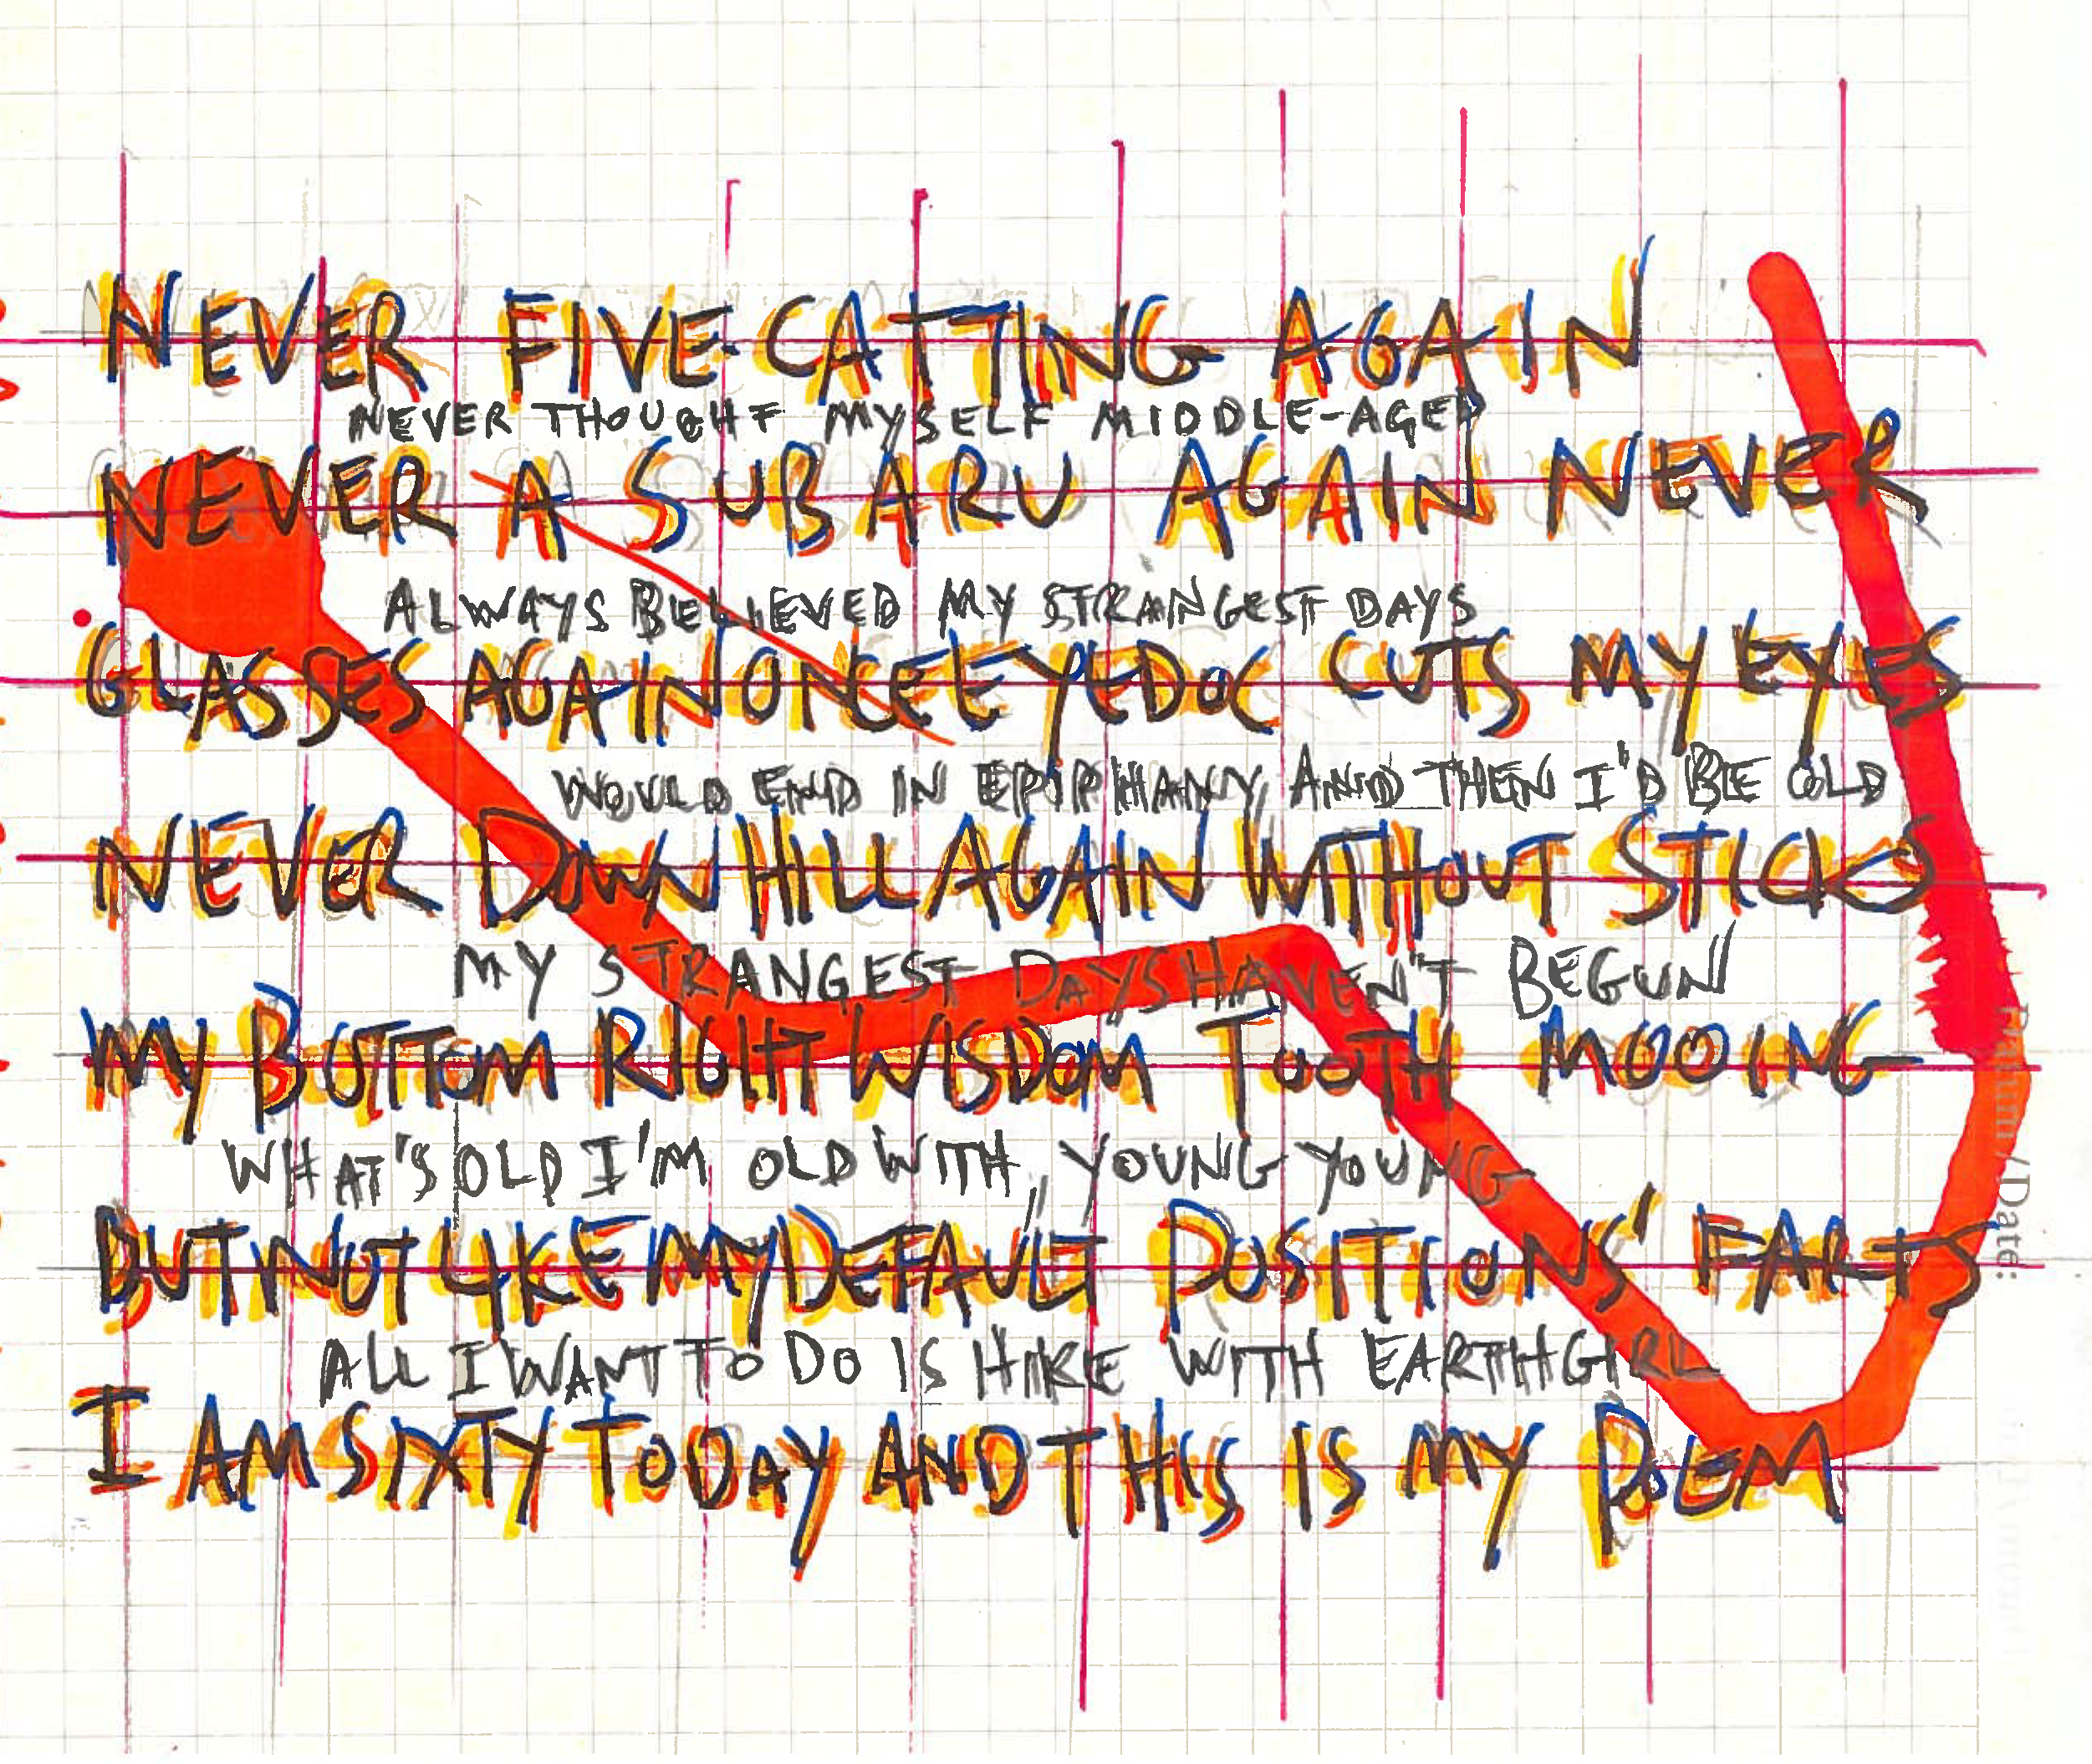 NEVER FIVECATTING AGAIN
NEVER THOUGHT MYSELF MIDDLE-AGED
NEVER A SUBARU AGAIN NEVER
ALWAYS BELIEVED MY STRANGEST DAYS
GLASSES AGAIN ONCE EYEDOC CUTS MY EYES
WOULD END IN EPIPHANY, AND THEN I'D BE OLD
NEVER DOWNHILL AGAIN WITHOUT STICKS
MY STRANGEST DAYS HAVEN'T BEGUN
MY BOTTOM RIGHT WISDOM TOOTH MOOING
WHAT'S OLD I'M OLD WITH, YOUNG YOUNG
BUT NOT LIKE MY DEFAULT POSITIONS' FARTS
ALL I WANT TO DO IS HIKE WITH EARTHGIRL
I AM SIXTY TODAY AND THIS IS MY POEM
/Date: